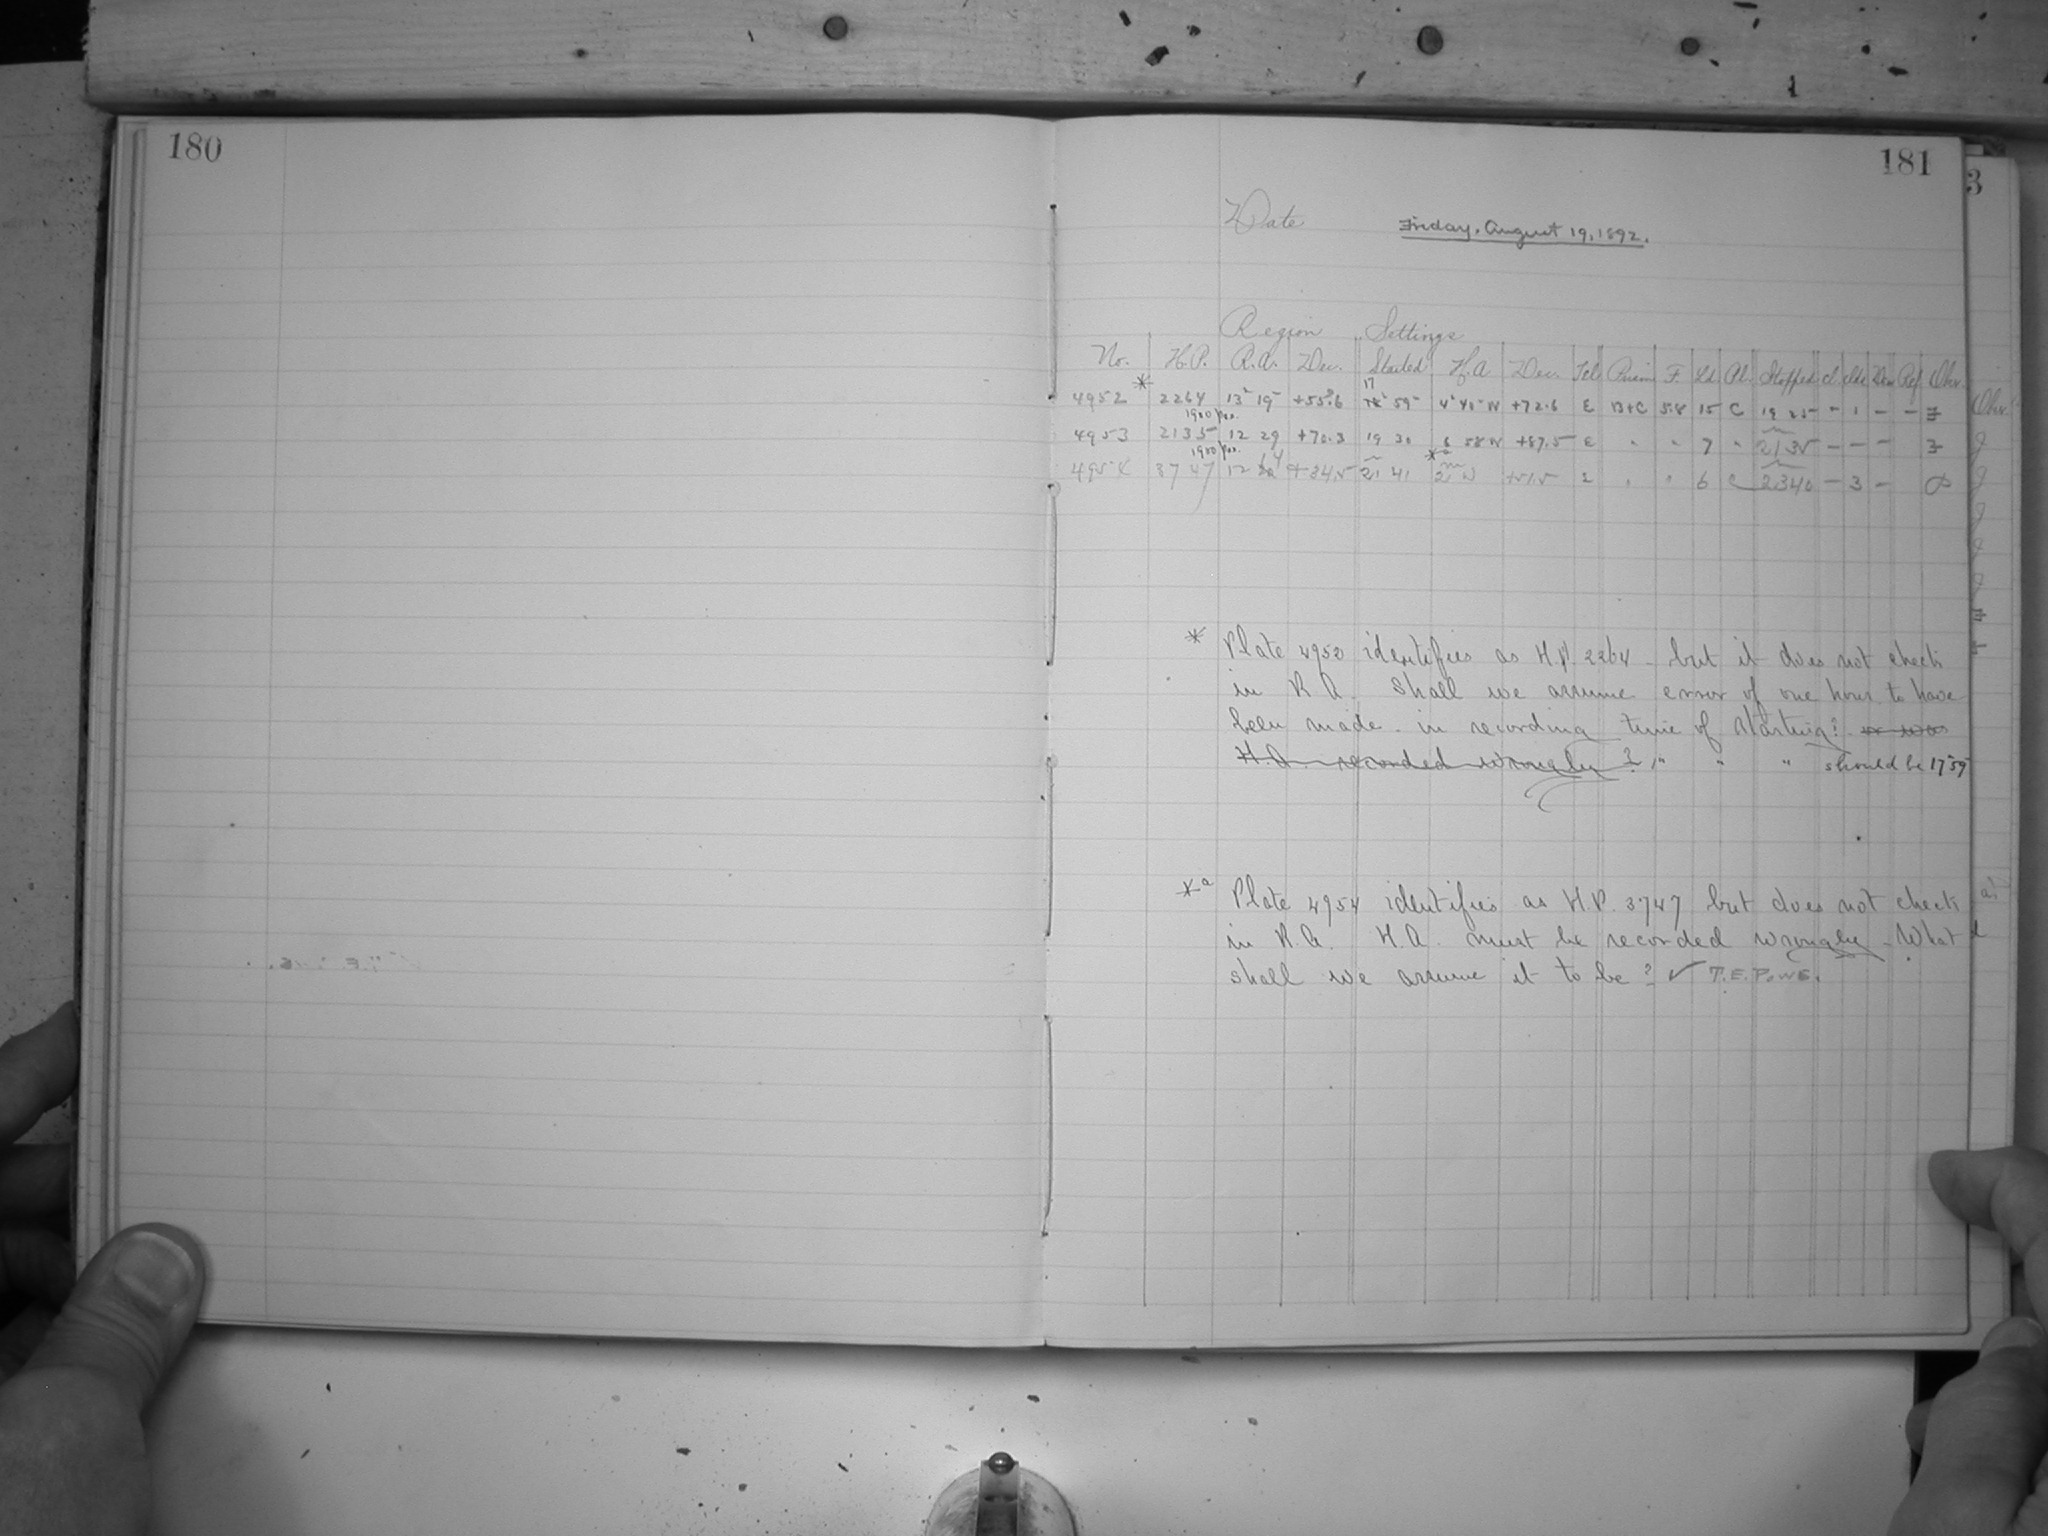 180
181
3
Date Friday, August 19, 1892.
Region Settings
No. H.P. R.A. Dec. Started H.A Dec. Tel Prism F. Pl. Stopped cl. Dew Ref Obs.
17
4952 * 2264 13 19 +55.6 59 4 45 W +72.6 E B+C 5.8 15 C 19 25 - 1 - - Obs.
1900 pos.
4953 2135 12 29 +70.3 19 30 6 58 W +87.5 E " " 7 " 2135 - - -
1900 pos.
4954 3747 12 +34.5 21 41 +51.5 " " 6 C 2340 - 3 -
* Plate 4952 identifies as H.P. 2264 - but it does not check
in R.A. Shall we assume error of one hour to have
been made in recording time of starting? or was
H.A. recorded wrongly? " " " should be 17 59
*a Plate 4954 identifies as H.P. 3747 but does not check
in R.A. H.A. must be recorded wrongly - What
shall we assume it to be? ✓ T.E.P. W6.